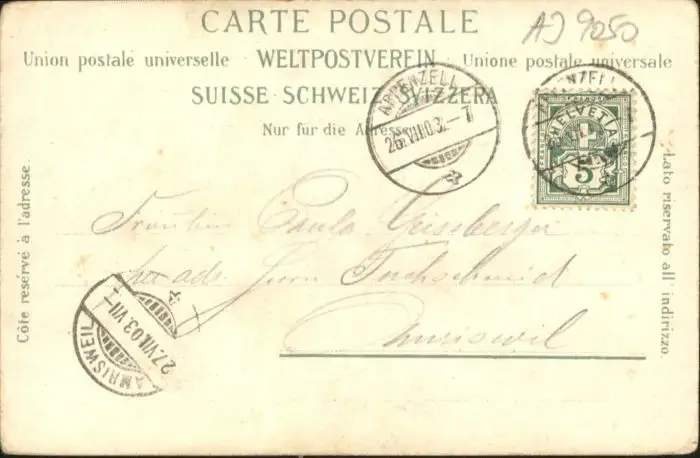 CARTE POSTALE
AJ 9050
Union postale universelle WELTPOSTVEREIN Unione postale universale
SUISSE · SCHWEIZ · SVIZZERA
Nur für die Adresse
APPENZELL
26.VII.03.-7
NZELL
HELVETIA
5
Côte reservé à l'adresse.
Lato riservato all' indirizzo.
Fräulein Paula Geissberger
per adr. Herrn Fuchschmid
Amriswil
AMRISWEIL
27.VII.03.VII-